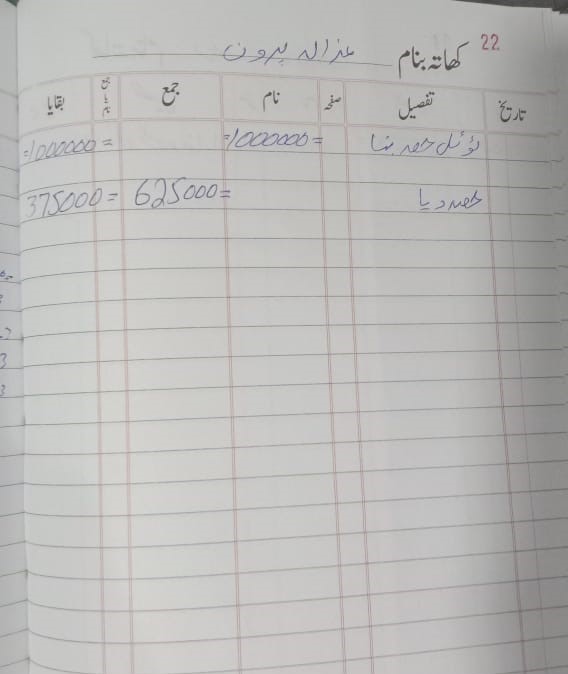 22
کھاتہ بنام غزالہ پروین
تاریخ تفصیل صفحہ نام جمع جمع یا نام بقایا
ٹوٹل حصہ بنا 1000000= 1000000=
حصہ دیا 625000= 375000=